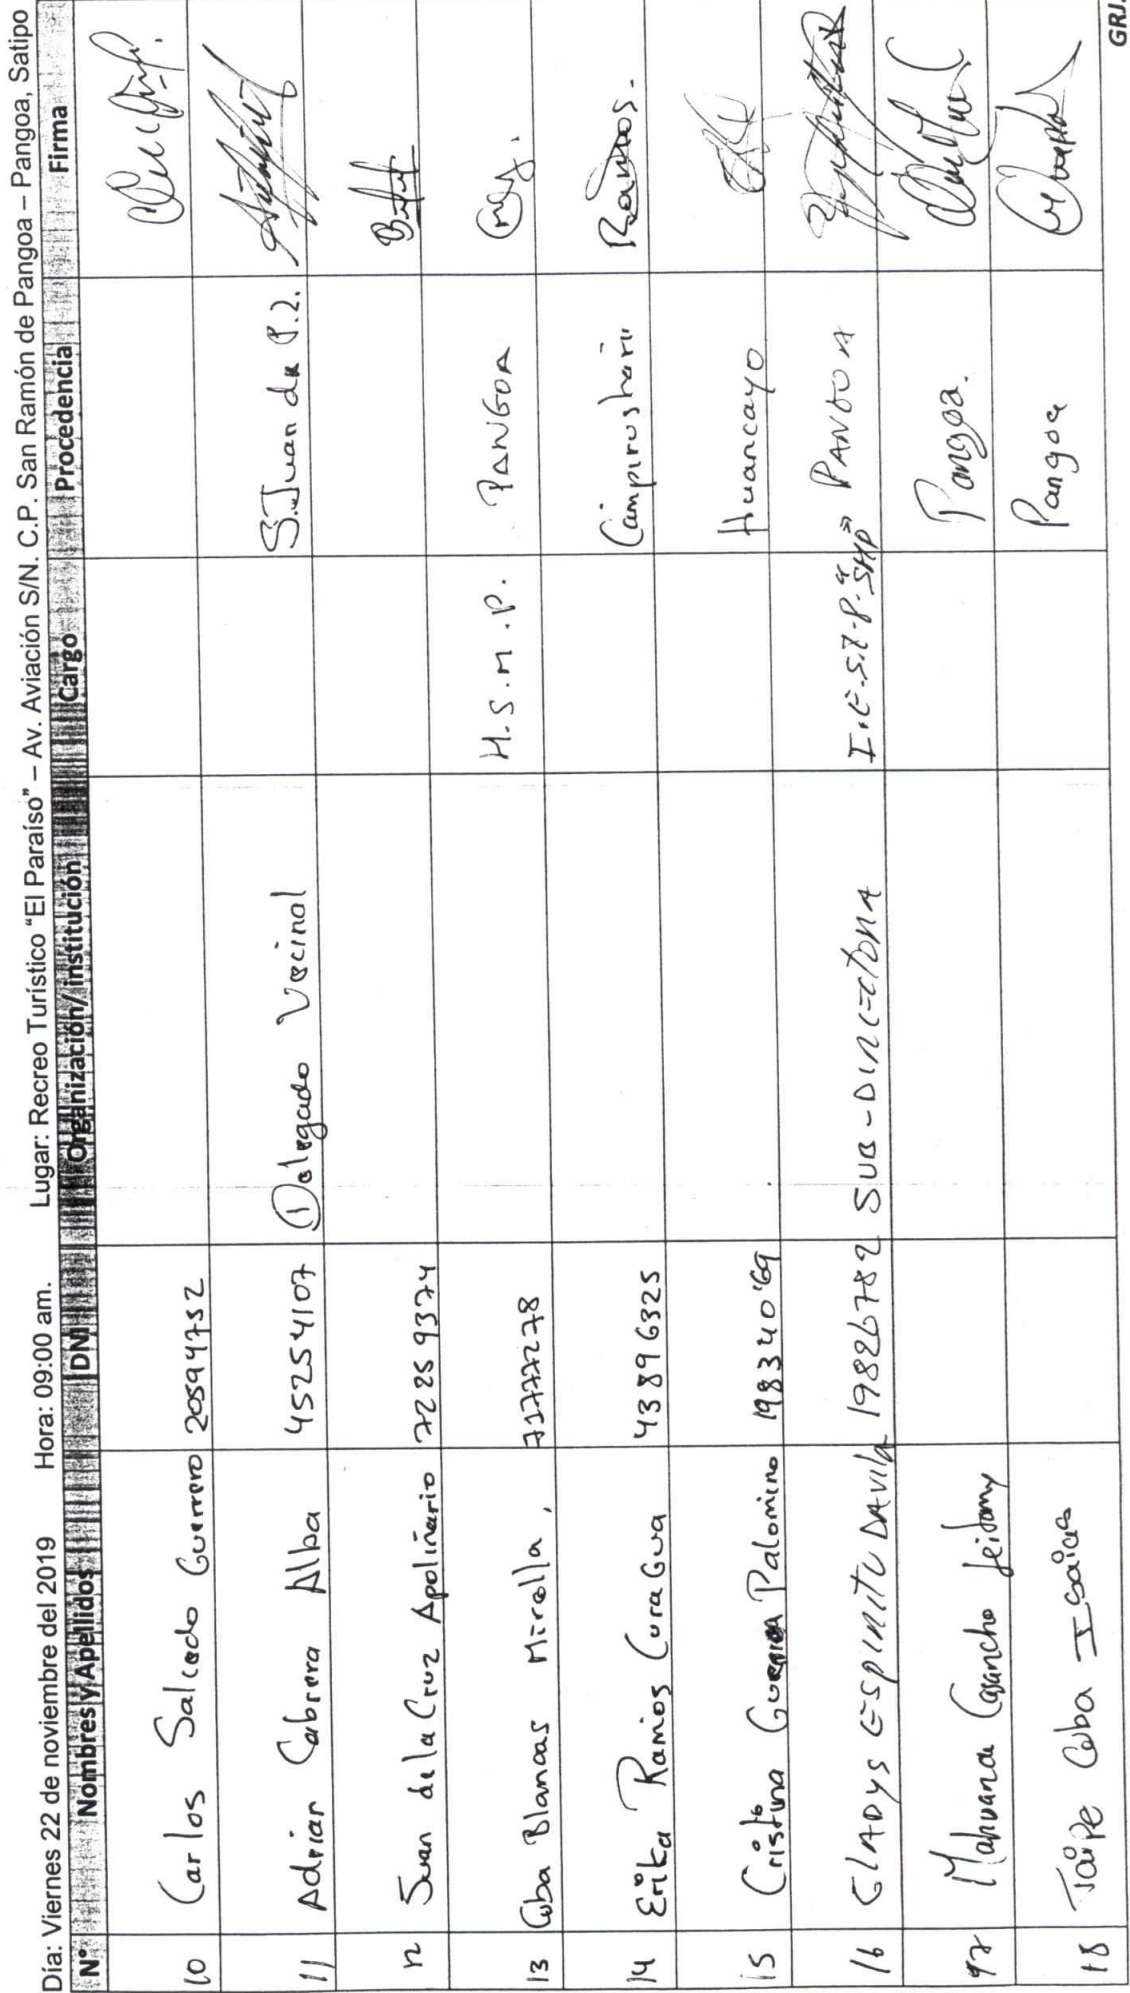 Día: Viernes 22 de noviembre del 2019 Hora: 09:00 am. Lugar: Recreo Turístico "El Paraíso" – Av. Aviación S/N. C.P. San Ramón de Pangoa – Pangoa, Satipo
N° Nombres y Apellidos DNI Organización/institución Cargo Procedencia Firma
10 Carlos Salcedo Guerrero 20594752
11 Adriar Cabrera Alba 45254107 Delegado Vecinal S. Juan de P.2.
12 Juan de la Cruz Apoliñario 72259374
13 Coba Blancas Mirella, 71777278 H.S.M.P. PANGOA
14 Erika Ramos Curagua 43896325 Campirushari Ramos.
15 Cristina Guerra Palomino 19834069 Huancayo
16 GLADYS ESPIRITU DAVILA 19826782 SUB-DIRECTORA I.E.S.T.P. "SMP" PANGOA
17 Mahuanca Casancho Leidamy Pangoa.
18 Jaipe Coba Isaias Pangoa
GRJ.